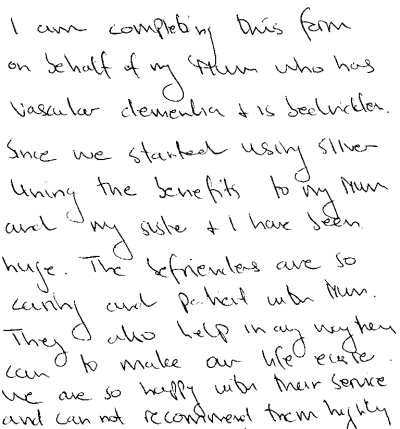 I am completing this form
on behalf of my Mum who has
vascular dementia & is bedridden.
Since we started using silver
lining the benefits to my Mum
and my sister & I have been
huge. The befrienders are so
caring and patient with Mum.
They also help in any way they
can to make our life easier.
We are so happy with their service
and can not recommend them highly